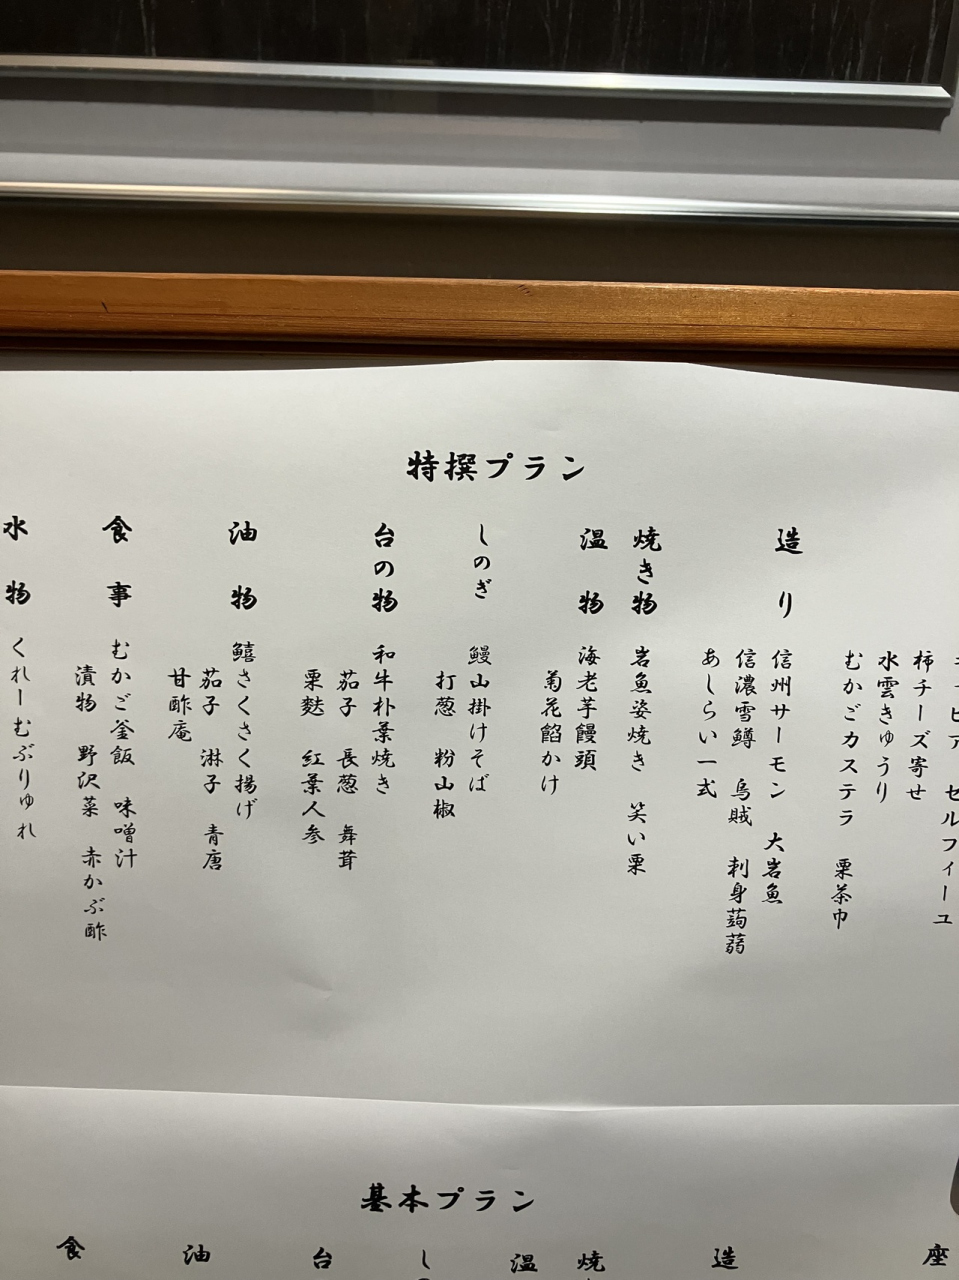 特撰プラン
セルフィーユ
柿チーズ寄せ
水雲きゅうり
むかごカステラ 栗茶巾
造り 信州サーモン 大岩魚
信濃雪鱒 烏賊 刺身蒟蒻
あしらい一式
焼き物 岩魚姿焼き 笑い栗
温物 海老芋饅頭
菊花餡かけ
しのぎ 鰻山掛けそば
打葱 粉山椒
台の物 和牛朴葉焼き
茄子 長葱 舞茸
栗麩 紅葉人参
油物 鱚さくさく揚げ
茄子 淋子 青唐
甘酢庵
食事 むかご釜飯 味噌汁
漬物 野沢菜 赤かぶ酢
水物 くれーむぶりゅれ
基本プラン
座
造
焼
温
し
台
油
食